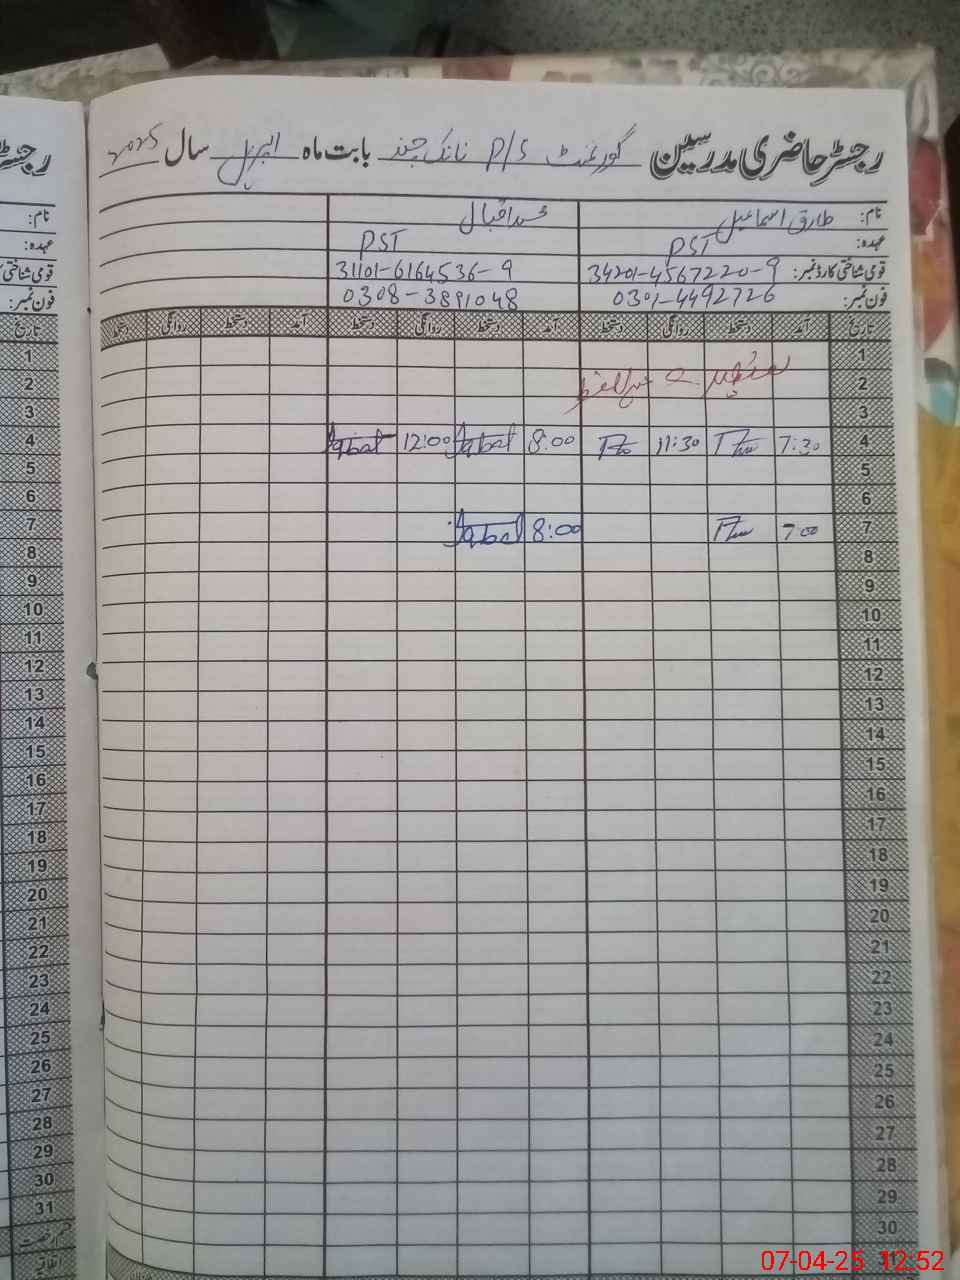 رجسٹر حاضری مدرسین گورنمنٹ P/S نانک چند بابت ماہ اپریل سال 2025
نام: طارق اسماعیل محمد اقبال
عہدہ: PST PST
قومی شناختی کارڈ نمبر: 34201-4567220-9 31101-6164536-9
فون نمبر: 0301-4492726 0308-3891048
تاریخ آمد دستخط روانگی دستخط آمد دستخط روانگی دستخط آمد دستخط روانگی دستخط
1
2 عید الفطر
3
4 7:30 11:30 8:00 Iqbal 12:00 Iqbal
5
6
7 7:00 8:00 Iqbal
8
9
10
11
12
13
14
15
16
17
18
19
20
21
22
23
24
25
26
27
28
29
30
رجسٹر
نام:
عہدہ:
قومی شناختی
فون نمبر:
تاریخ
1
2
3
4
5
6
7
8
9
10
11
12
13
14
15
16
17
18
19
20
21
22
23
24
25
26
27
28
29
30
31
اتفاقیہ
07-04-25 12:52